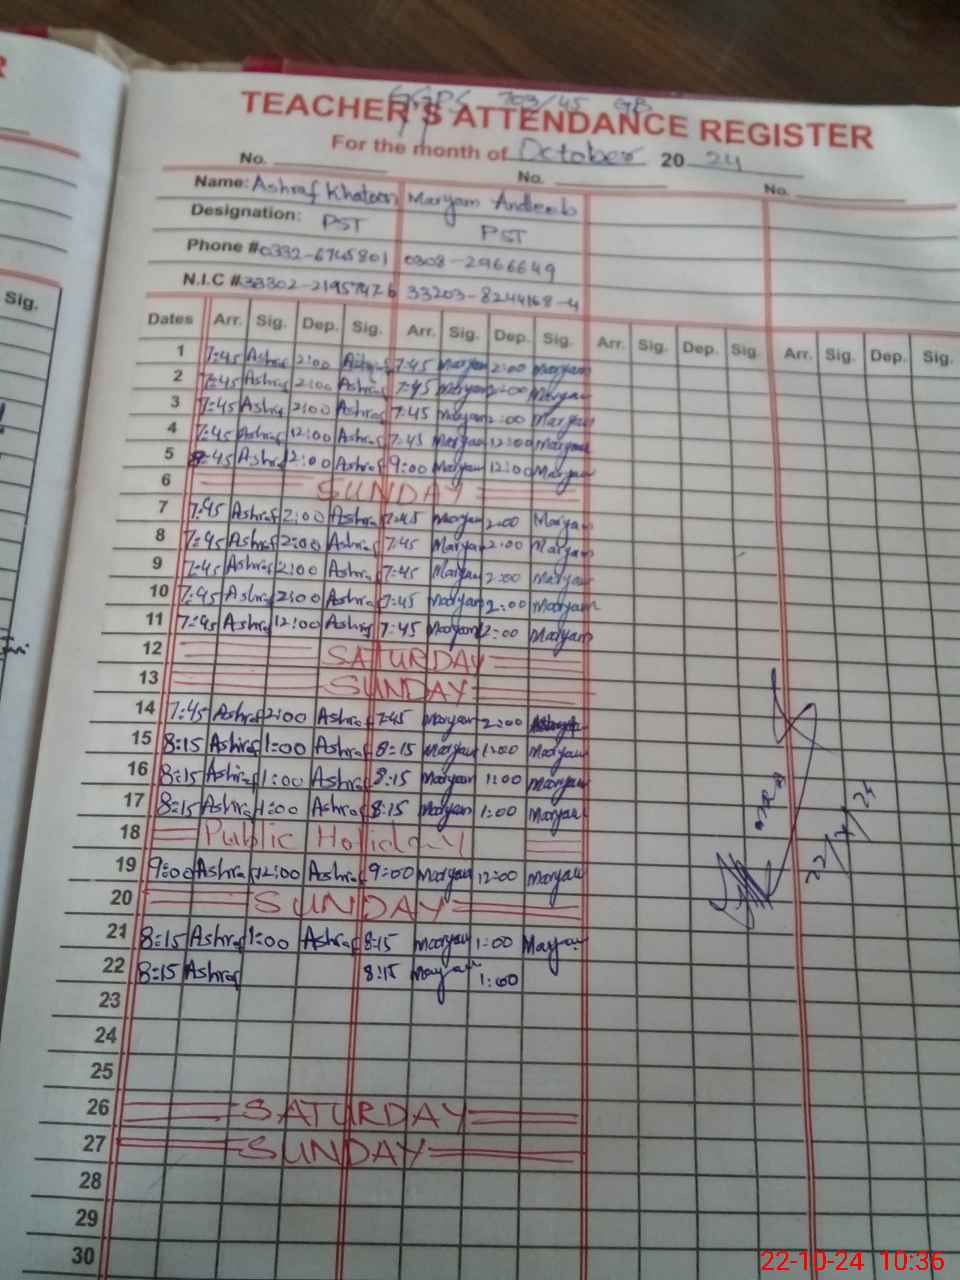 GGPS 703/45 GB
TEACHER'S ATTENDANCE REGISTER
For the month of October 20 24
No. No. No.
Name: Ashraf Khatoon Maryam Andleeb
Designation: PST PST
Phone # 0332-6745801 0308-2966649
N.I.C # 33302-2195747-6 33203-8244168-4
Sig.
Dates Arr. Sig. Dep. Sig. Arr. Sig. Dep. Sig. Arr. Sig. Dep. Sig. Arr. Sig. Dep. Sig.
1 7:45 Ashraf 2:00 Ashraf 7:45 Maryam 2:00 Maryam
2 7:45 Ashraf 2:00 Ashraf 7:45 Maryam 2:00 Maryam
3 7:45 Ashraf 2:00 Ashraf 7:45 Maryam 2:00 Maryam
4 7:45 Ashraf 12:00 Ashraf 7:45 Maryam 12:00 Maryam
5 Ashraf 12:00 Ashraf 9:00 Maryam 12:00 Maryam
6 SUNDAY
7 7:45 Ashraf 2:00 Ashraf 7:45 Maryam 2:00 Maryam
8 7:45 Ashraf 2:00 Ashraf 7:45 Maryam 2:00 Maryam
9 7:45 Ashraf 2:00 Ashraf 7:45 Maryam 2:00 Maryam
10 7:45 Ashraf 2:00 Ashraf 7:45 Maryam 2:00 Maryam
11 7:45 Ashraf 12:00 Ashraf 7:45 Maryam 12:00 Maryam
12 SATURDAY
13 SUNDAY
14 7:45 Ashraf 2:00 Ashraf 7:45 Maryam 2:00
15 8:15 Ashraf 1:00 Ashraf 8:15 Maryam 1:00 Maryam
16 8:15 Ashraf 1:00 Ashraf 8:15 Maryam 1:00 Maryam
17 8:15 Ashraf 1:00 Ashraf 8:15 Maryam 1:00 Maryam
18 Public Holiday
19 9:00 Ashraf 12:00 Ashraf 9:00 Maryam 12:00 Maryam
20 SUNDAY
21 8:15 Ashraf 1:00 Ashraf 8:15 Maryam 1:00 Maryam
22 8:15 Ashraf 8:15 Maryam 1:00
23
24
25
26 SATURDAY
27 SUNDAY
28
29
30
22-10-24 10:36